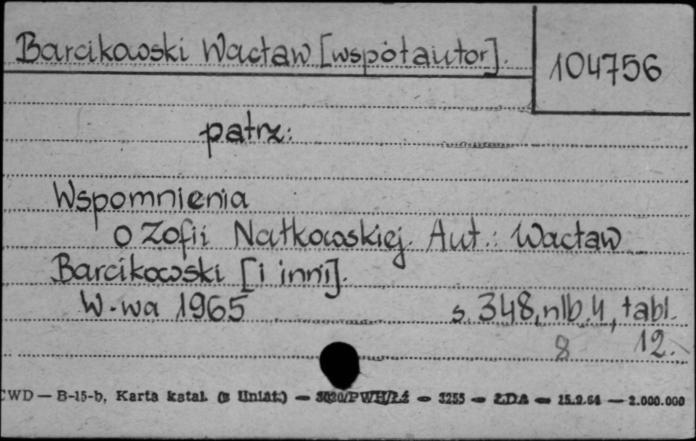 Barcikowski Wacław [współautor].
104756
patrz:
Wspomnienia
o Zofii Nałkowskiej. Aut.: Wacław
Barcikowski [i inni].
W-wa 1965 s. 348, nlb. 4, tabl.
8 12.
CWD — B-15-b, Karta katal. (z liniat.) — 3020/PWH/Łź — 3255 — ŁDA — 15.9.64 — 2.000.000